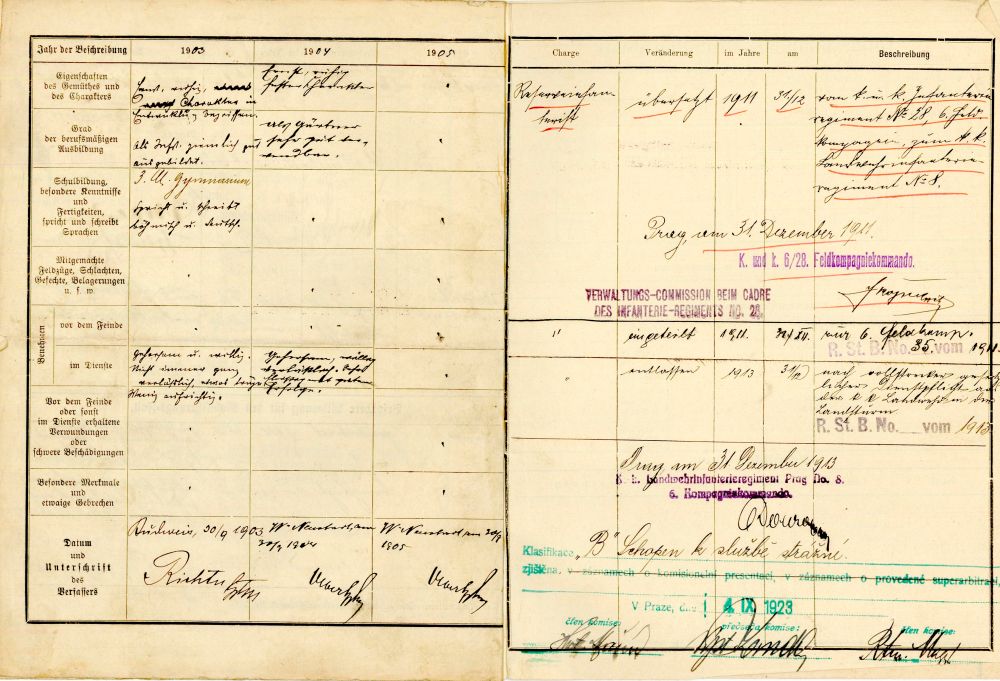 Jahr der Beschreibung
1903
1904
1905
Eigenschaften
des Gemüthes und
des Charakters
ernst, ruhig
Charakter in
fester Charakter
"
Grad
der berufsmäßigen
Ausbildung
als Inft. ziemlich gut
ausgebildet.
als Gärtner
sehr gut ver-
wendbar.
"
Schulbildung,
besondere Kenntnisse
und
Fertigkeiten,
spricht und schreibt
Sprachen
3. Kl. Gymnasium
spricht u. schreibt
böhmisch u. deutsch.
"
"
Mitgemachte
Feldzüge, Schlachten,
Gefechte, Belagerungen
u. s. w.
"
"
"
Benehmen
vor dem Feinde
"
"
"
im Dienste
Gehorsam u. willig.
Nicht immer ganz
verlässlich, etwas träge
wenig aufrichtig.
Gehorsam, willig
verlässlich.
mit gutem
Erfolge.
"
Vor dem Feinde
oder sonst
im Dienste erhaltene
Verwundungen
oder
schwere Beschädigungen
"
"
"
Besondere Merkmale
und
etwaige Gebrechen
"
"
"
Datum
und
Unterschrift
des
Verfassers
Budweis, 30/9 1903
1904
1905
Charge
Veränderung
im Jahre
am
Beschreibung
Reserveinfan
terist
übersetzt
1911
31/12
vom k. u. k. Infanterie
regiment No 28, 6. Feld
kompagnie, zum k. k.
Landwehrinfanterie
regiment No 8.
Prag, am 31. Dezember 1911.
K. und k. 6/28. Feldkompagniekommando.
VERWALTUNGS-COMMISSION BEIM CADRE
DES INFANTERIE-REGIMENTS NO. 28.
"
eingeteilt
1911.
31/XII.
zur 6. Feldkomp.
R. St. B. No. 35 vom 1911
"
entlassen
1913
31/12
nach vollstreckter gesetz
licher Dienstpflicht aus
der k k Landwehr in den
Landsturm
R. St. B. No. vom 1913
Prag am 31 Dezember 1913
K. k. Landwehrinfanterieregiment Prag No. 8.
6. Kompagniekommando.
Klasifikace „B" Schopen k službě strážné.
zjištěna, v záznamech o komisionelní presentaci, v záznamech o provedené superarbitraci,
V Praze, dne 4 IX 1923
člen komise:
předseda komise:
člen komise: